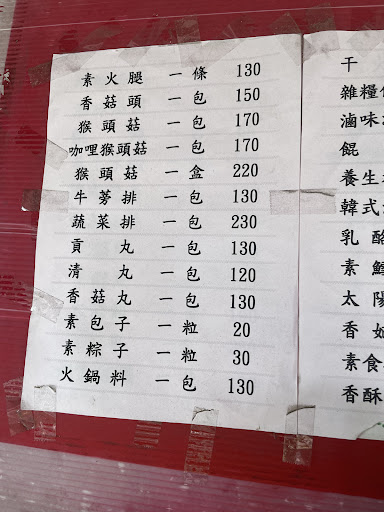 素火腿 一條 130
香菇頭 一包 150
猴頭菇 一包 170
咖哩猴頭菇 一包 170
猴頭菇 一盒 220
牛蒡排 一包 130
蔬菜排 一包 230
貢丸 一包 130
清丸 一包 120
香菇丸 一包 130
素包子 一粒 20
素粽子 一粒 30
火鍋料 一包 130
干
雜糧
滷味
餛
養生
韓式
乳酪
素
太陽
香
素食
香酥